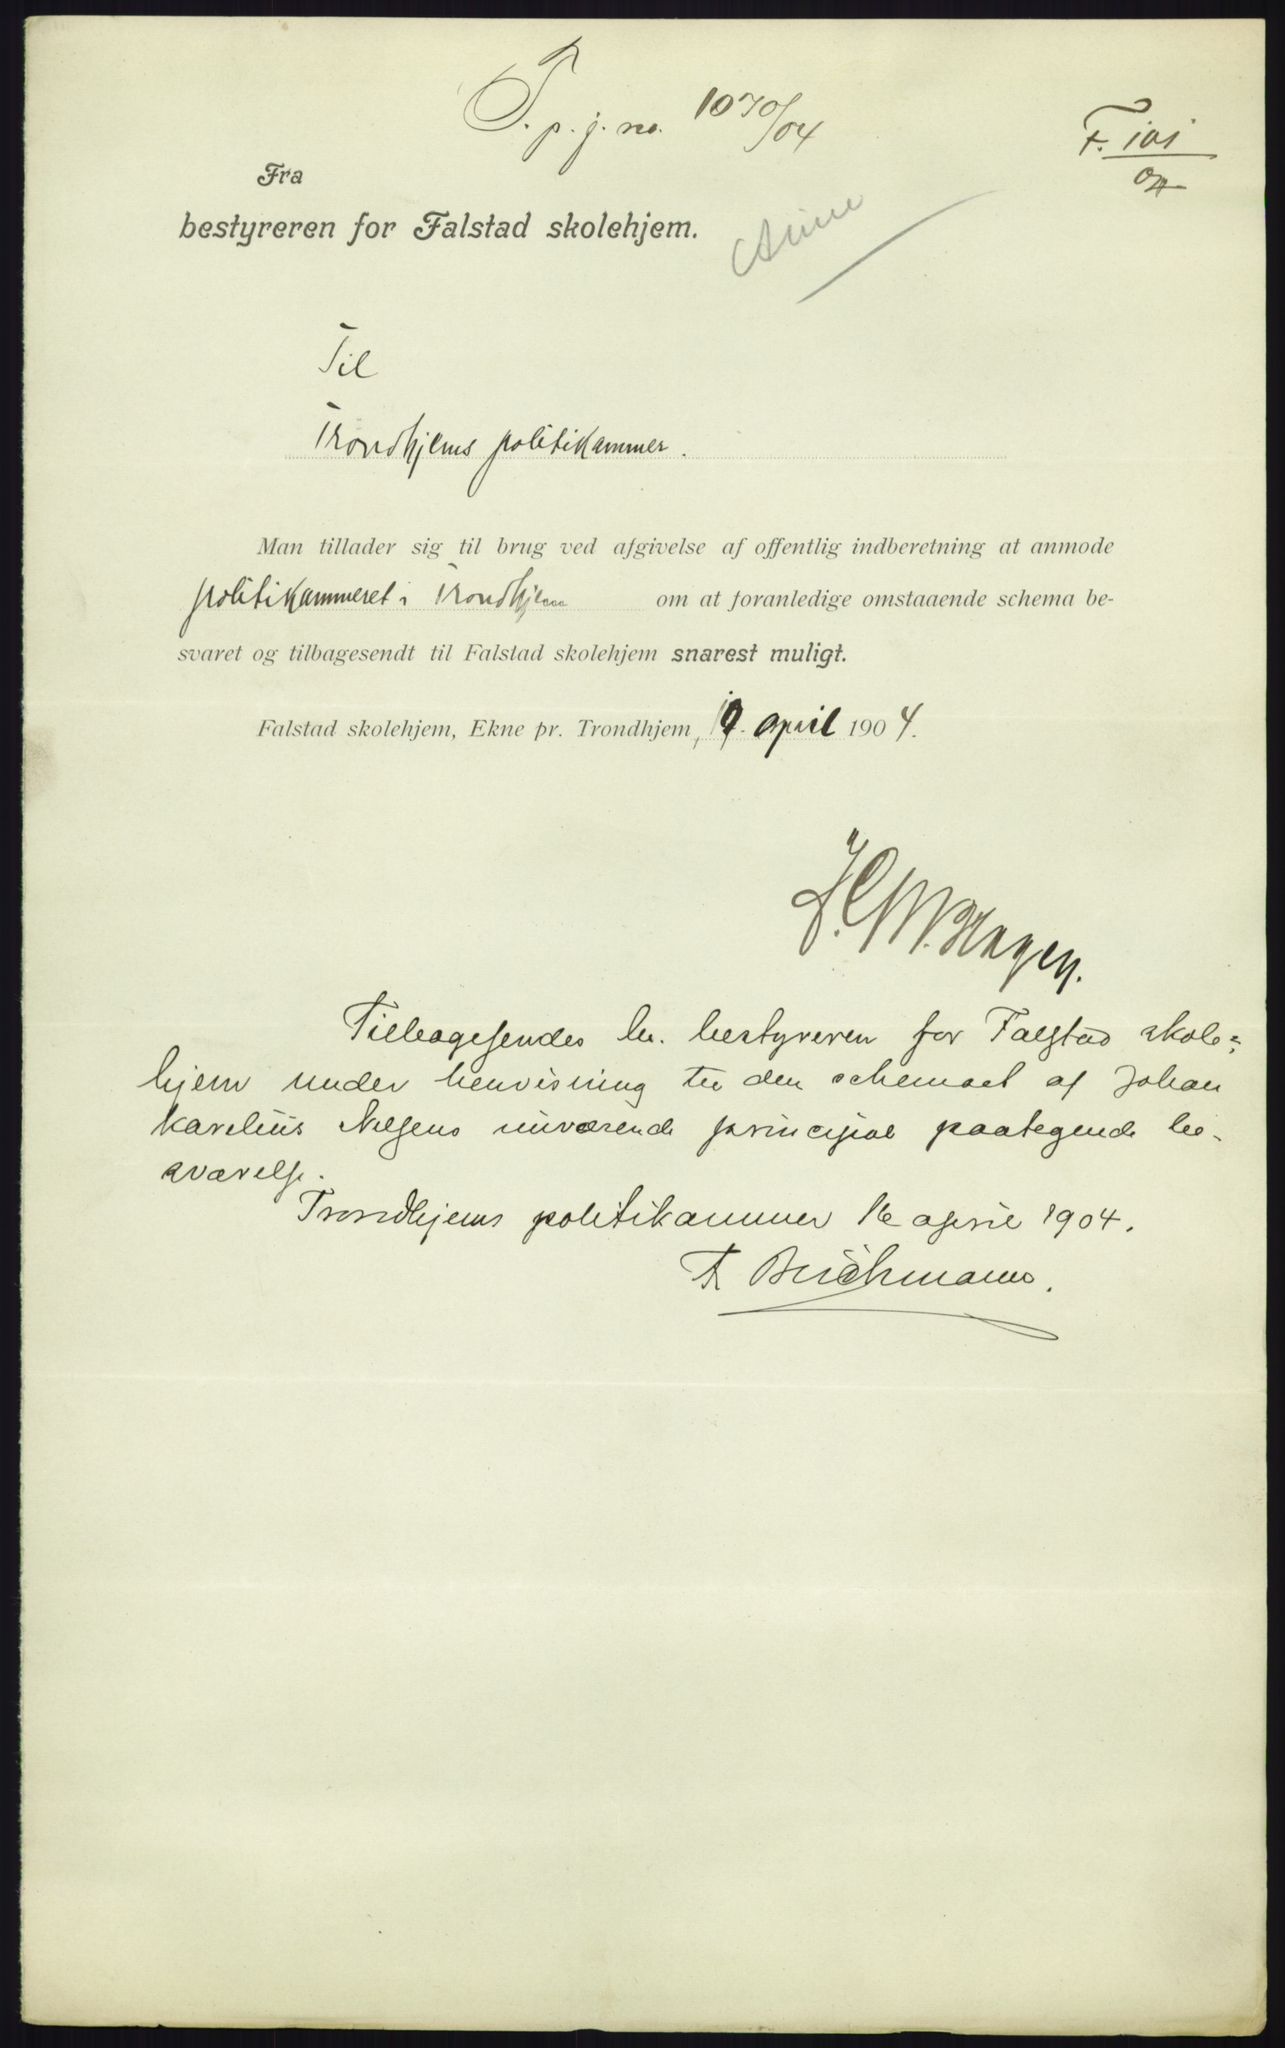 T. p. j. no. 1070/04
F. 101
04
Fra
bestyreren for Falstad skolehjem.
Til
Trondhjems politikammer.
Man tillader sig til brug ved afgivelse af offentlig indberetning at anmode
politikammeret i Trondhjem om at foranledige omstaaende schema be-
svaret og tilbagesendt til Falstad skolehjem snarest muligt.
Falstad skolehjem, Ekne pr. Trondhjem, april 1904.
Hagen.
Tilbagesendes hr. bestyreren for Falstad skole-
hjem under henvisning til den schemaet af Johan
Karelius Nilsens nuværende principal paategnede be-
svarelse.
Trondhjems politikammer 16 april 1904.